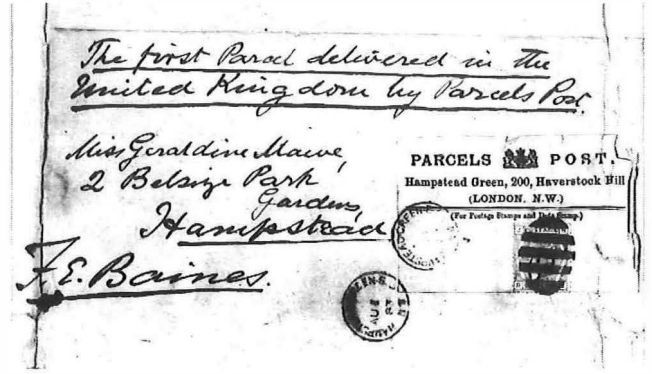 The first Parcel delivered in the
United Kingdom by Parcels Post.
Miss Geraldine Mawe,
2 Belsize Park
Gardens,
Hampstead
F. E. Baines.
PARCELS POST.
Hampstead Green, 200, Haverstock Hill
(LONDON. N.W.)
(For Postage Stamps and Date Stamp.)
AU